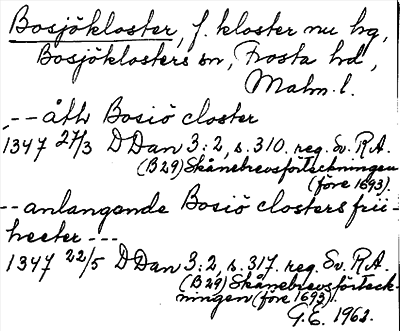 Bosjökloster, f. kloster nu hg,
Bosjöklosters sn, Frosta hd,
Malm. l.
-- åth Bosiö closter
1347 27/3 D Dan 3:2, s. 310. reg. Sv. R.A.
(B 29) Skånebrevsförteckningen
(före 1693).
-- anlangande Bosiö closters frii-
heeter ---
1347 22/5 D Dan 3:2, s. 317. reg. Sv. R.A.
(B 29) Skånebrevsförteck-
ningen (före 1693).
G.E. 1962.